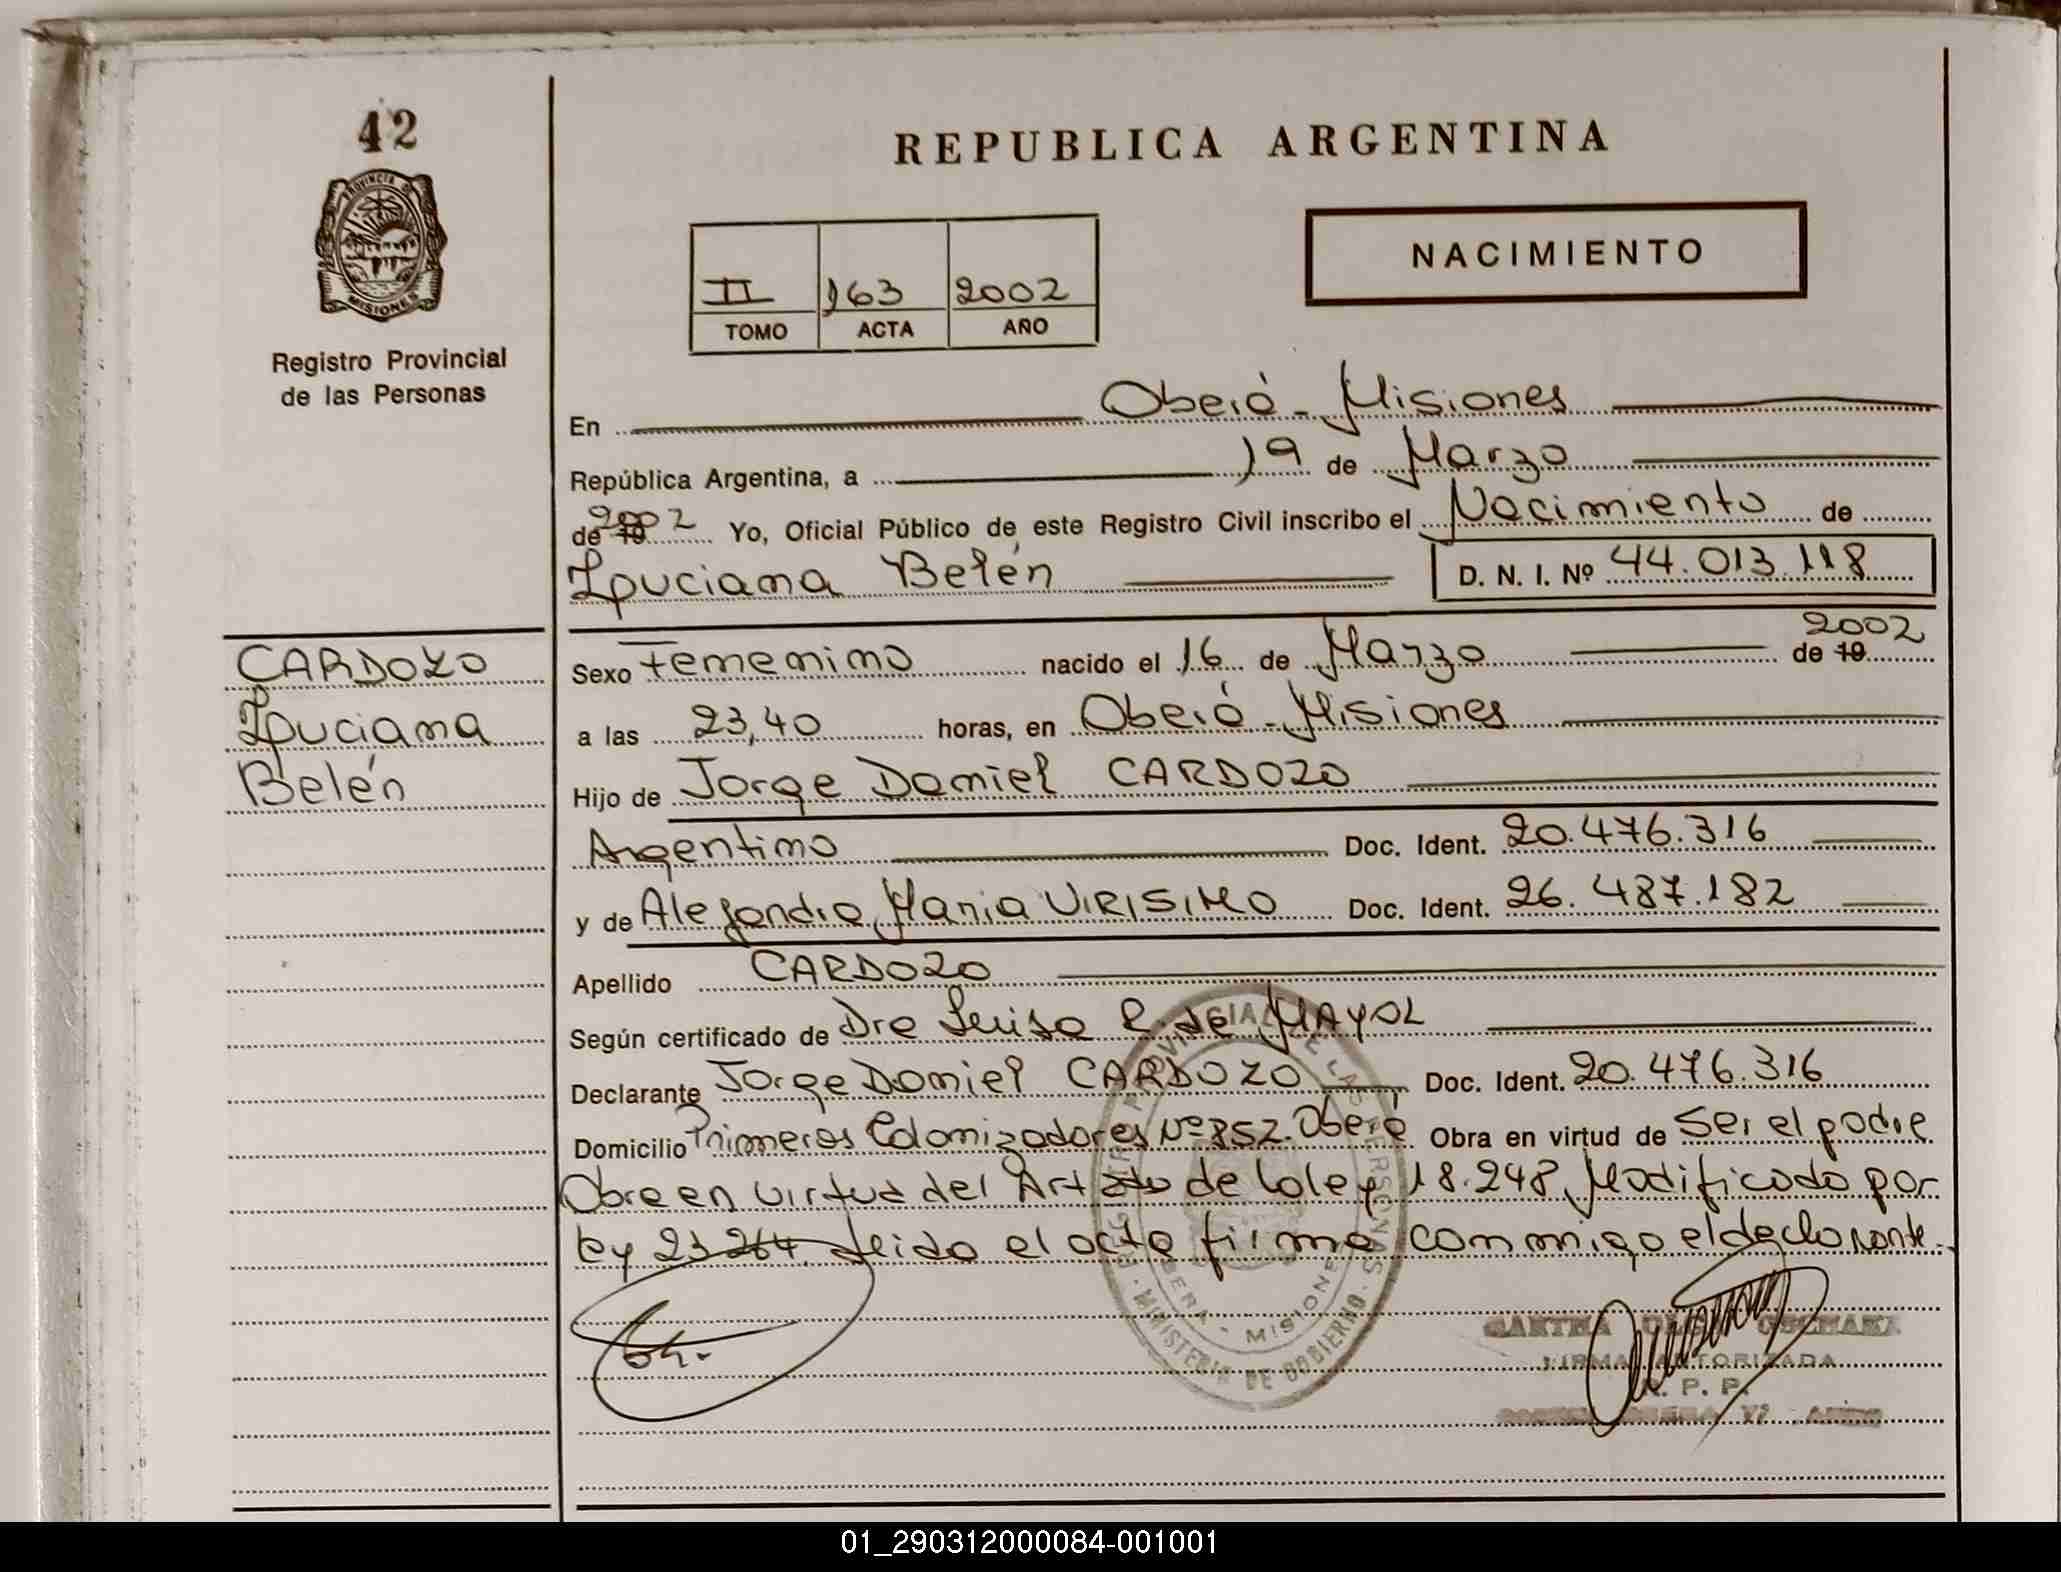 42
REPUBLICA ARGENTINA
PROVINCIA DE
MISIONES
NACIMIENTO
II 163 2002
TOMO ACTA AÑO
Registro Provincial
de las Personas
En Oberá - Misiones
República Argentina, a 19 de Marzo
de 19 2002 Yo, Oficial Público de este Registro Civil inscribo el Nacimiento de
Luciana Belén D. N. I. Nº 44.013.118
CARDOZO
Luciana
Belén
Sexo Femenino nacido el 16 de Marzo de 19 2002
a las 23,40 horas, en Oberá - Misiones
Hijo de Jorge Daniel CARDOZO
Argentino Doc. Ident. 20.476.316
y de Alejandra Maria VIRISIMO Doc. Ident. 26.487.182
Apellido CARDOZO
Según certificado de Dra Luisa R. de MAYOL
Declarante Jorge Daniel CARDOZO Doc. Ident. 20.476.316
Domicilio Primeros Colonizadores Nº 852. Oberá Obra en virtud de Ser el padre
Obra en virtud del Art de la ley 18.248, Modificado por
ley 23.264, leida el acta firma conmigo el declarante.
REGISTRO PROVINCIAL DE LAS PERSONAS
OBERA - MISIONES
MINISTERIO DE GOBIERNO
FIRMA AUTORIZADA
R. P. P.
01_290312000084-001001